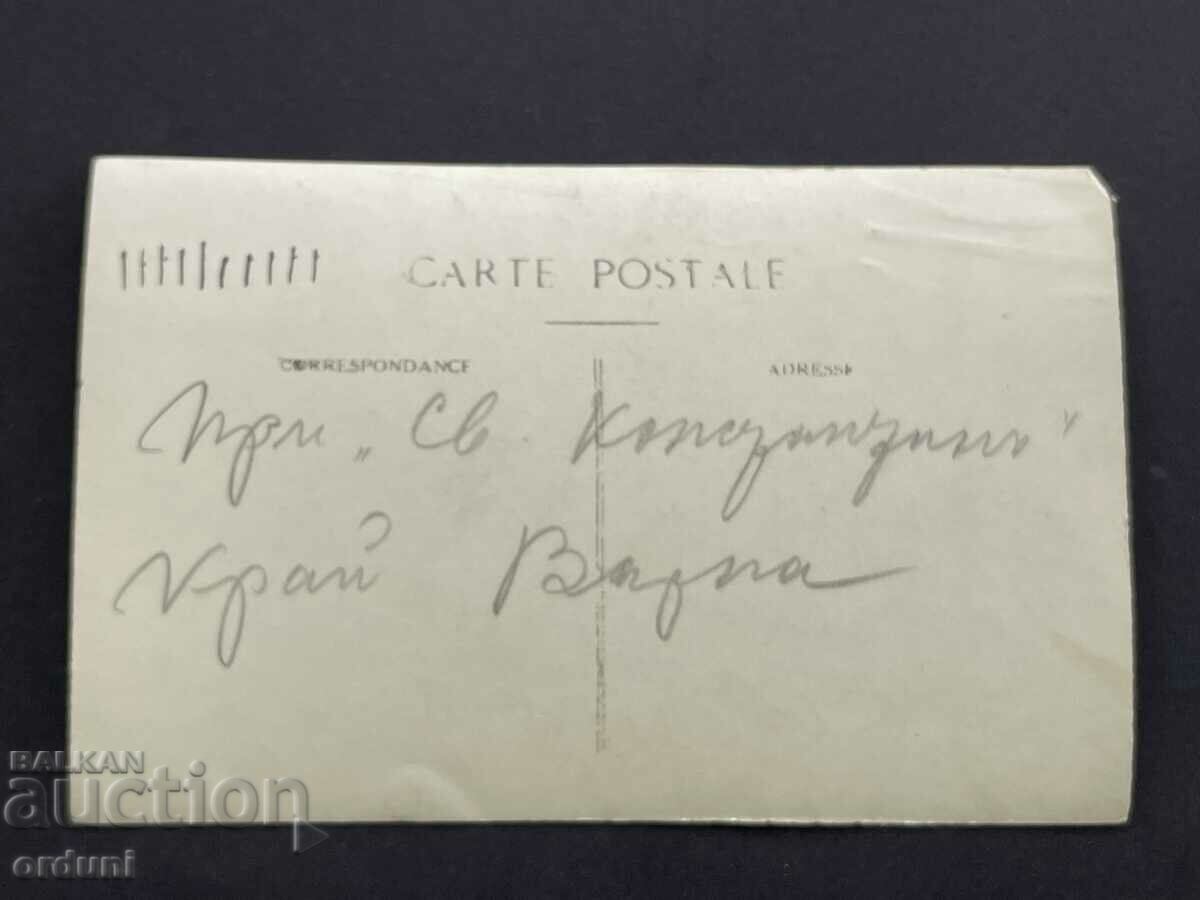 CARTE POSTALE
CORRESPONDANCE
ADRESSE
При „Св. Константинъ"
край Варна
BALKAN
auction
orduni